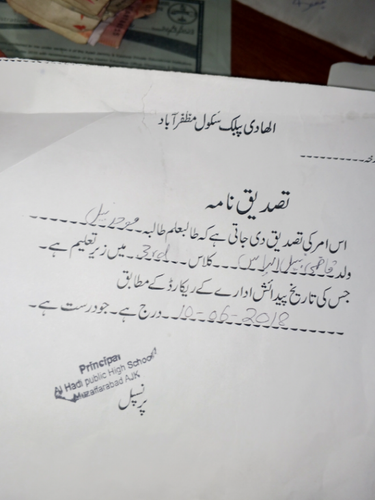 الھادی پبلک سکول مظفرآباد
تصدیق نامہ
اس امر کی تصدیق دی جاتی ہے کہ طالبعلم طالبہ
ولد کلاس میں زیر تعلیم ہے۔
جس کی تاریخ پیدائش ادارے کے ریکارڈ کے مطابق
10-06-2018 درج ہے۔ جو درست ہے۔
Principal
Al Hadi public High School
Muzaffarabad AJK
پرنسپل